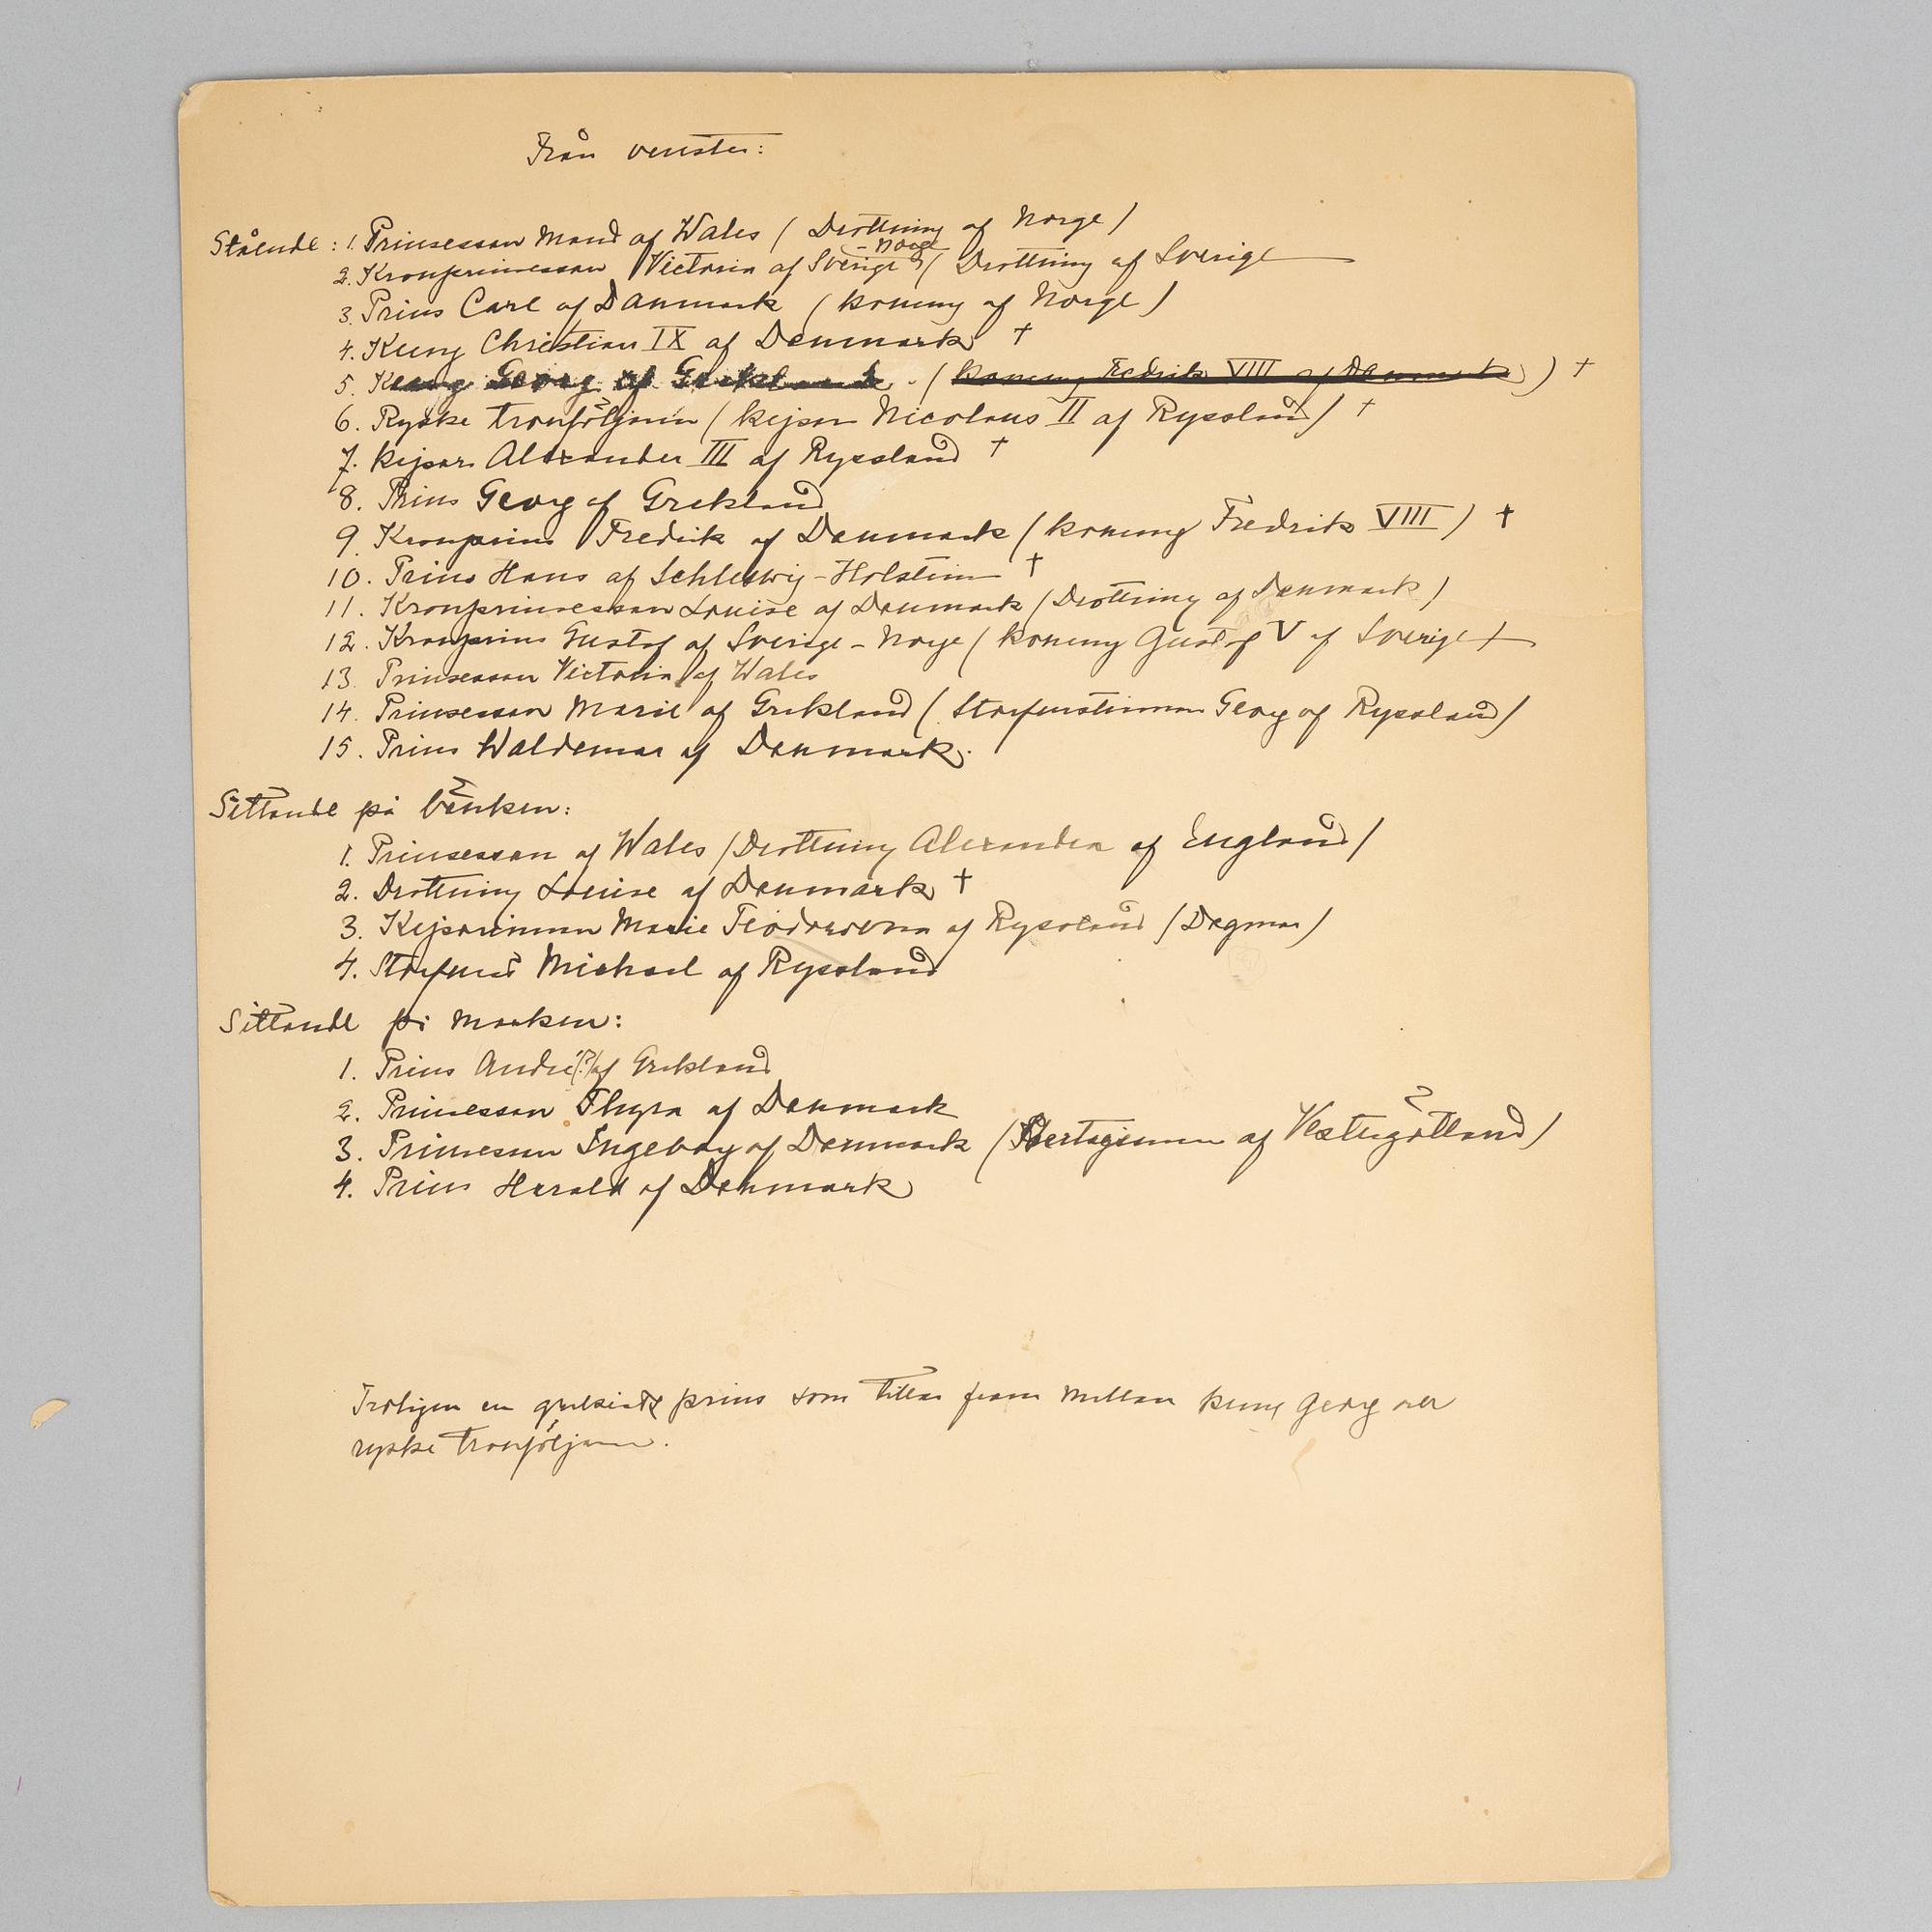 Från venster:
Stående: 1. Prinsessan Maud af Wales (Drottning af Norge)
2. Kronprinsessan Victoria af Sverige - Norge (Drottning af Sverige
3. Prins Carl af Danmark (konung af Norge)
4. Kung Christian IX af Danmark †
5. Kung Georg af Grekland. (konung Fredrik VIII af Danmark) †
6. Ryske tronföljaren (kejsar Nicolaus II af Ryssland) †
7. kejsar Alexander III af Ryssland †
8. Prins Georg af Grekland
9. Kronprins Fredrik af Danmark (konung Fredrik VIII) †
10. Prins Hans af Schleswig-Holstein †
11. Kronprinsessan Louise af Danmark (Drottning af Danmark)
12. Kronprins Gustaf af Sverige - Norge (konung Gustaf V af Sverige)
13. Prinsessan Victoria af Wales
14. Prinsessan Marie af Grekland (Storfurstinnan Georg af Ryssland)
15. Prins Waldemar af Danmark.
Sittande på bänken:
1. Prinsessan af Wales (Drottning Alexandra af England)
2. Drottning Louise af Danmark †
3. Kejsarinnan Marie Feodorovna af Ryssland (Dagmar)
4. Storfurst Michael af Ryssland
Sittande på marken:
1. Prins André (?) af Grekland
2. Prinsessan Thyra af Danmark
3. Prinsessan Ingeborg af Danmark (Hertiginnan af Vestergötland)
4. Prins Harald af Danmark
Troligen en grekisk prins som tittar fram mellan kung Georg och
ryske tronföljaren.